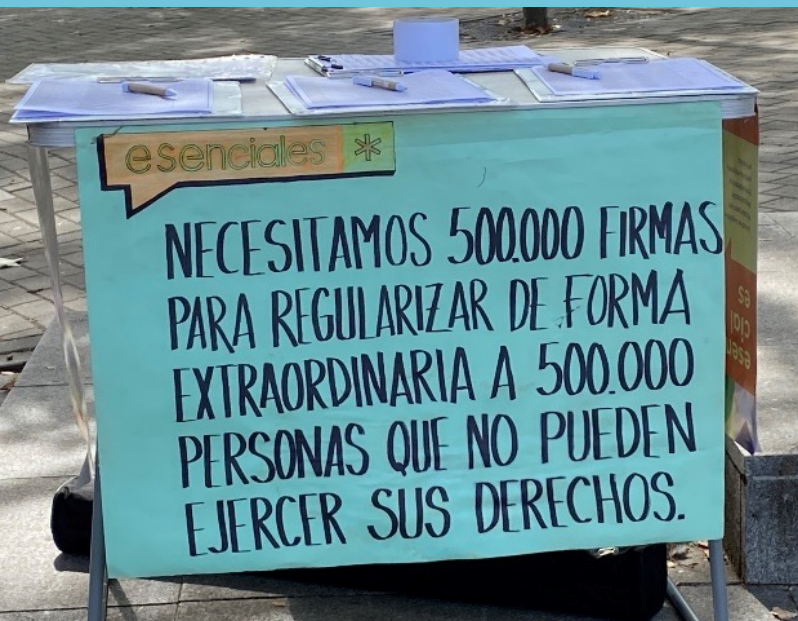 esenciales *
NECESITAMOS 500.000 FIRMAS
PARA REGULARIZAR DE FORMA
EXTRAORDINARIA A 500.000
PERSONAS QUE NO PUEDEN
EJERCER SUS DERECHOS.
esen
cial
es